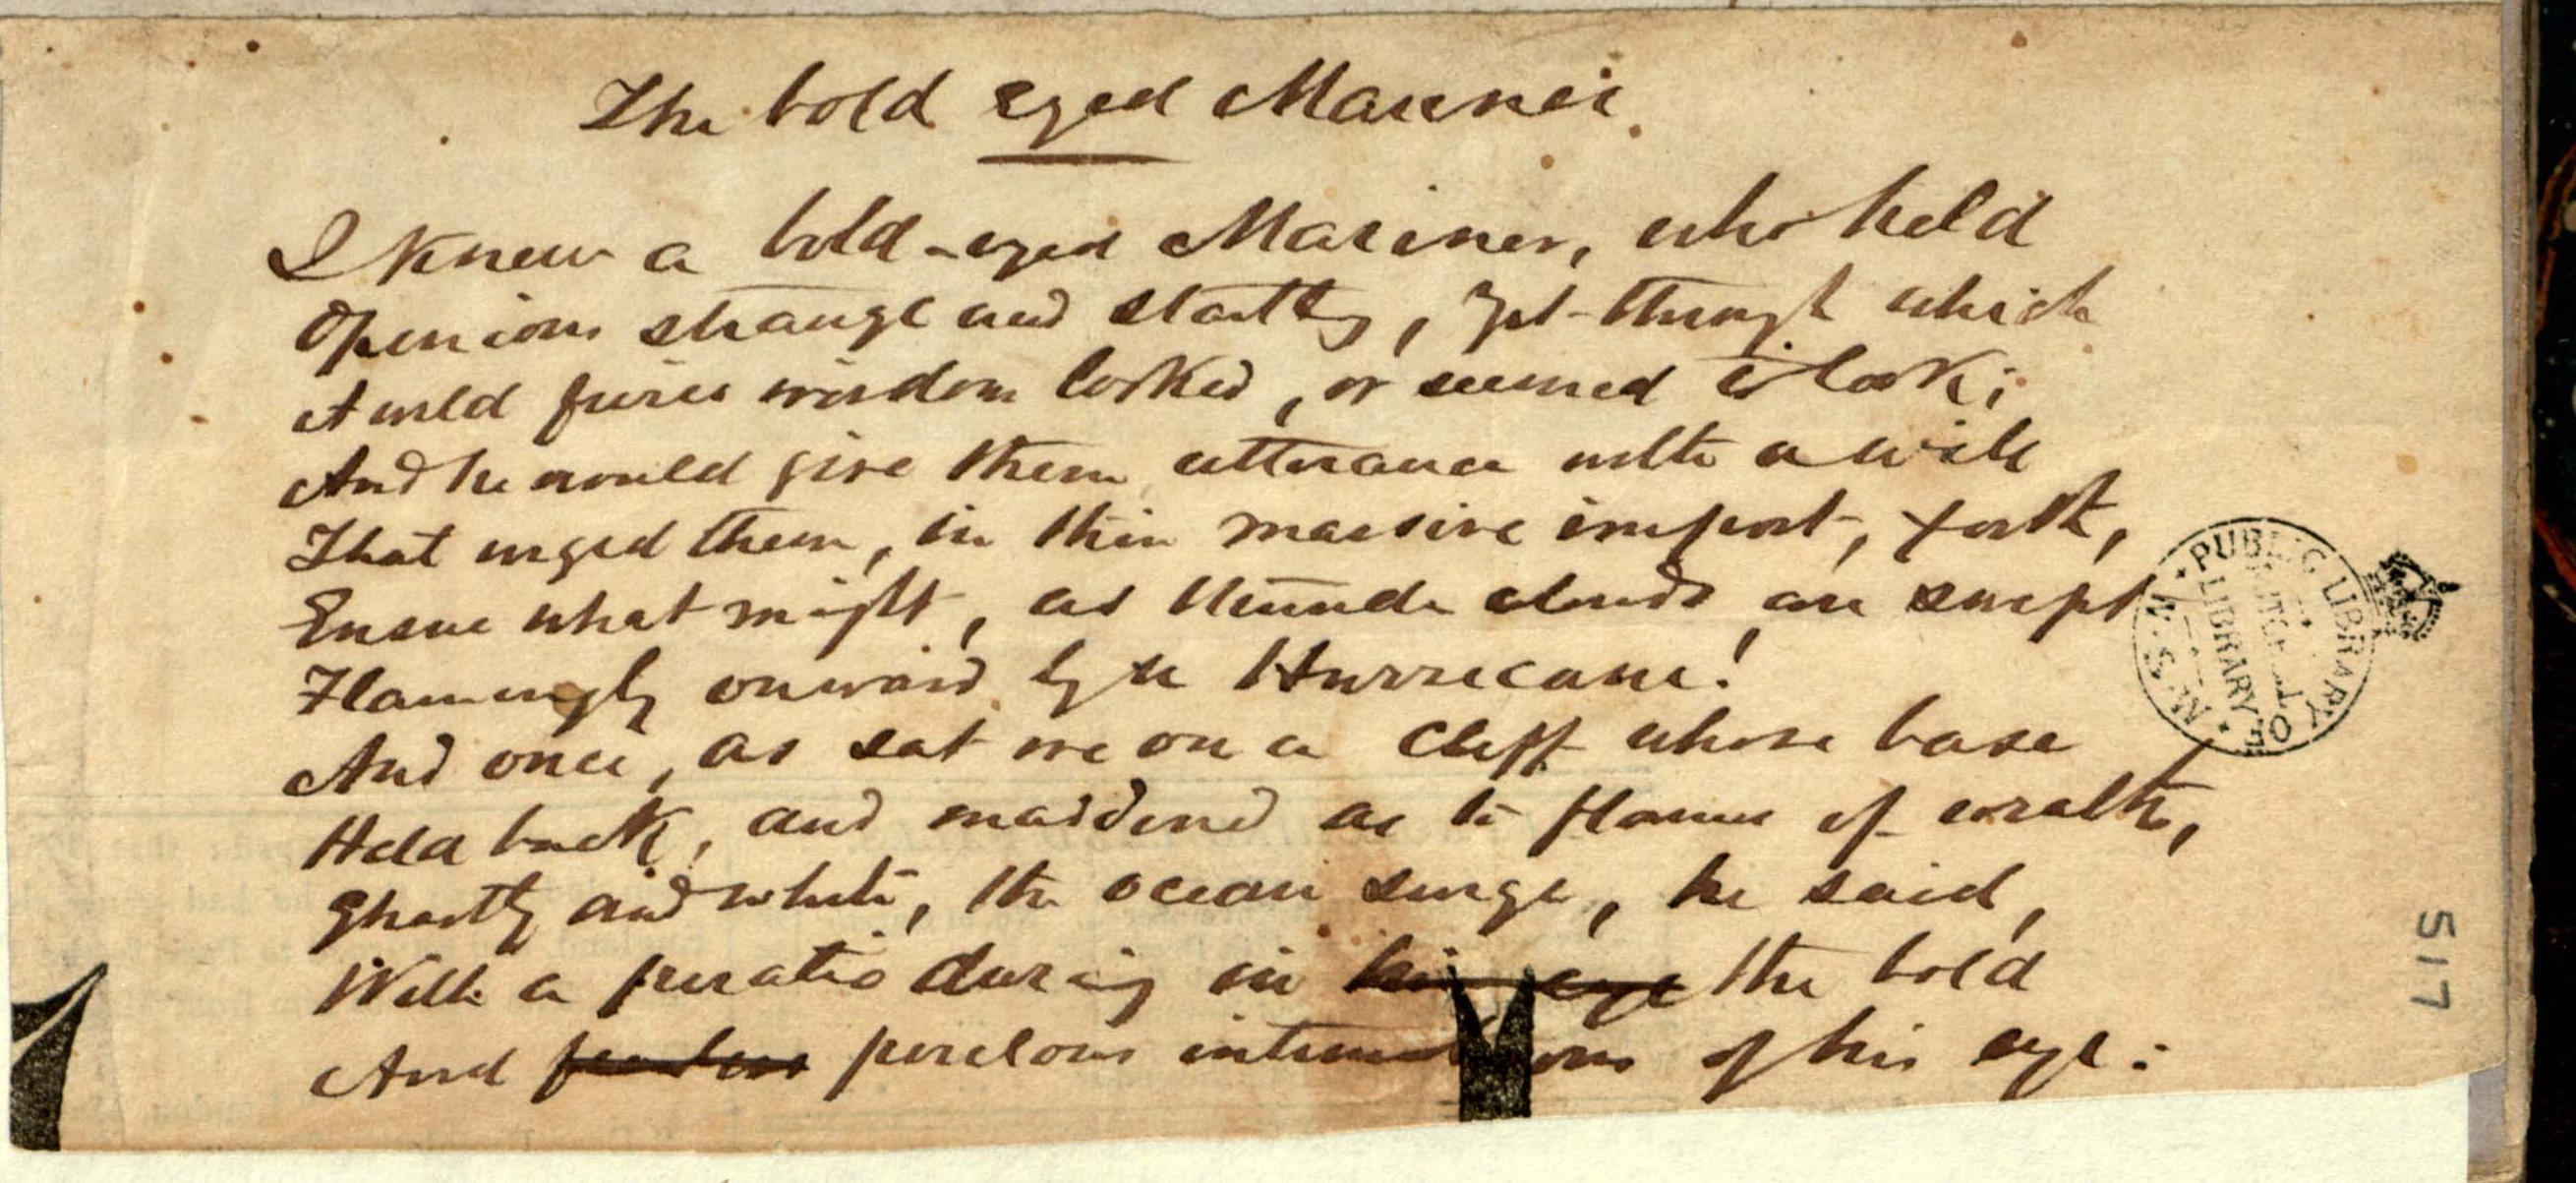 The bold eyed Mariner.
I knew a bold-eyed Mariner, who held
Opinions strange and startling, yet through which
A wild fierce wisdom looked, or seemed to look;
And he would give them utterance with a will
That urged them, in their massive import, forth,
Ensue what might, as thunder clouds are swept
Flamingly onward by the Hurricane!
And once, as sat we on a cliff whose base
Held back, and maddened as to flames of wrath,
Ghastly and white, the ocean surge, he said,
With a daring in his eye the bold
And fearless perilous intimations of his eye:
PUBLIC LIBRARY OF N.S.W.
MITCHELL LIBRARY
517